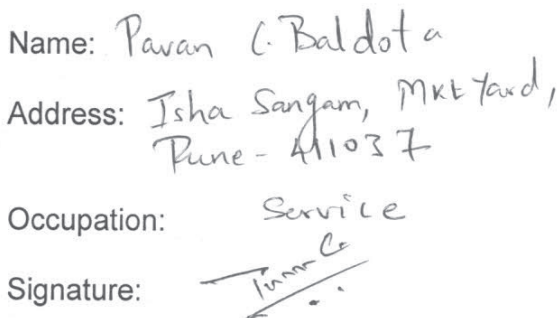 Name: Pavan C. Baldota
Address: Isha Sangam, Mkt Yard,
Pune - 411037
Occupation: Service
Signature: